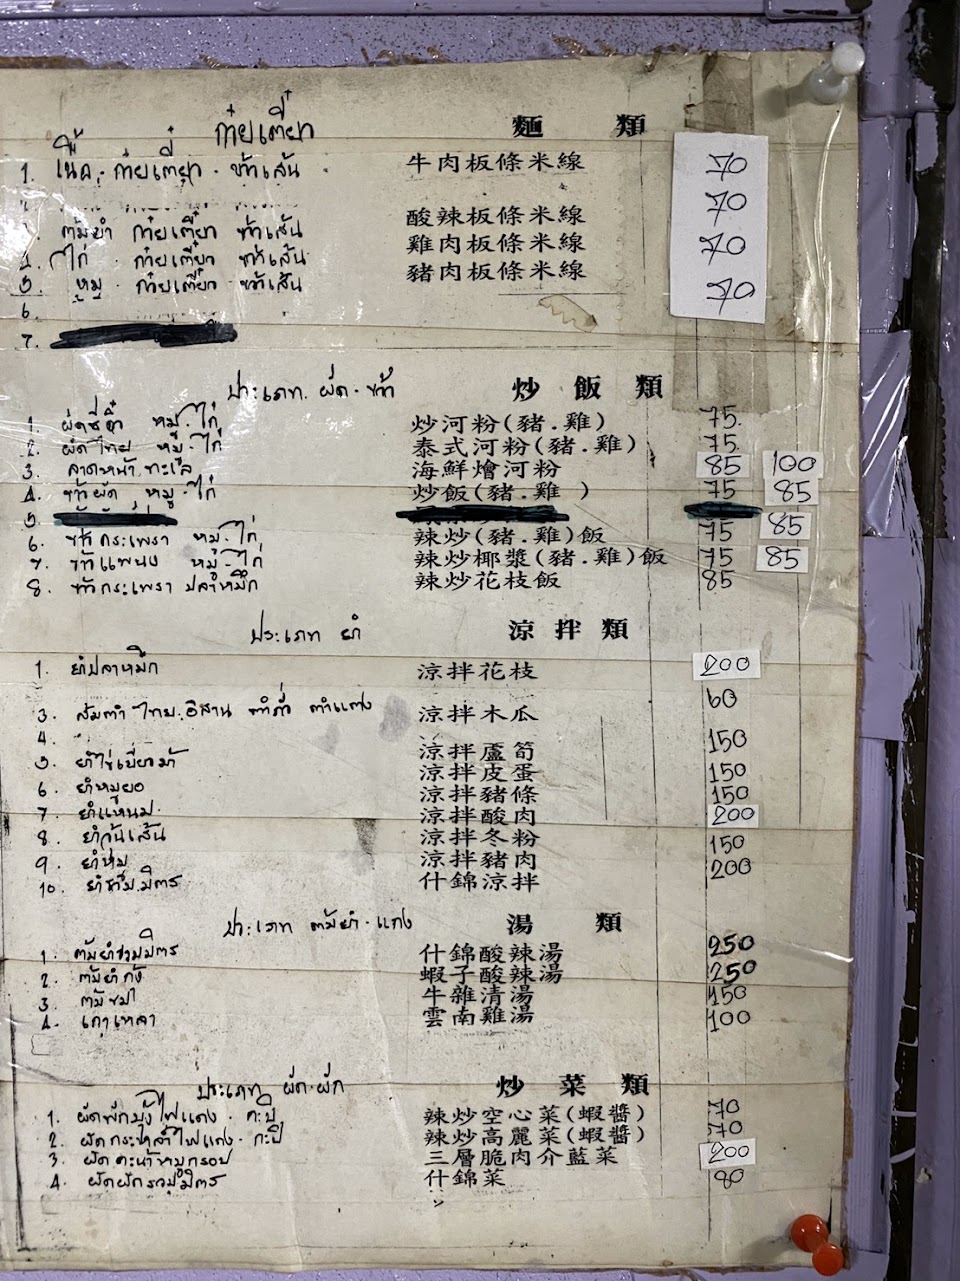 ก๋วยเตี๋ยว 麵 類
1. เนื้อ. ก๋วยเตี๋ยว. ข้าวเส้น 牛肉板條米線 70
ต้มยำ ก๋วยเตี๋ยว ข้าวเส้น 酸辣板條米線 70
4. ไก่. ก๋วยเตี๋ยว ข้าวเส้น 雞肉板條米線 70
5. หมู. ก๋วยเตี๋ยว. ข้าวเส้น 豬肉板條米線 70
6.
7.
ประเภท. ผัด. ข้าว 炒 飯 類
1. ผัดซีอิ๊ว หมู. ไก่ 炒河粉(豬.雞) 75.
2. ผัดไทย หมู. ไก่ 泰式河粉(豬.雞) 75.
3. ลาดหน้า ทะเล 海鮮燴河粉 85 100
4. ข้าวผัด หมู. ไก่ 炒飯(豬.雞 ) 75 85
5.
6. ข้าวกระเพรา หมู. ไก่ 辣炒(豬.雞)飯 75 85
7. ข้าวแพนง หมู. ไก่ 辣炒椰漿(豬.雞)飯 75 85
8. ข้าวกระเพรา ปลาหมึก 辣炒花枝飯 85
ประเภท ยำ 涼 拌 類
1. ยำปลาหมึก 涼拌花枝 200
3. ส้มตำ ไทย.อีสาน ตำถั่ว ตำแตง 涼拌木瓜 60
4. 涼拌蘆筍 150
5. ยำไข่เยี่ยวม้า 涼拌皮蛋 150
6. ยำหมูยอ 涼拌豬條 150
7. ยำแหนม. 涼拌酸肉 200
8. ยำวุ้นเส้น 涼拌冬粉 150
9. ยำหมู 涼拌豬肉 200
10. ยำรวม.มิตร 什錦涼拌
ประเภท ต้มยำ. แกง 湯 類
1. ต้มยำรวมมิตร 什錦酸辣湯 250
2. ต้มยำกุ้ง 蝦子酸辣湯 250
3. ต้มขม 牛雜清湯 150
4. เกาเหลา 雲南雞湯 100
ประเภท ผัด. ผัก 炒 菜 類
1. ผัดผักบุ้งไฟแดง. กะปิ 辣炒空心菜(蝦醬) 70
2. ผัดกระหล่ำไฟแดง. กะปิ 辣炒高麗菜(蝦醬) 70
3. ผัดคะน้าหมูกรอบ 三層脆肉介藍菜 200
4. ผัดผักรวมมิตร 什錦菜 80